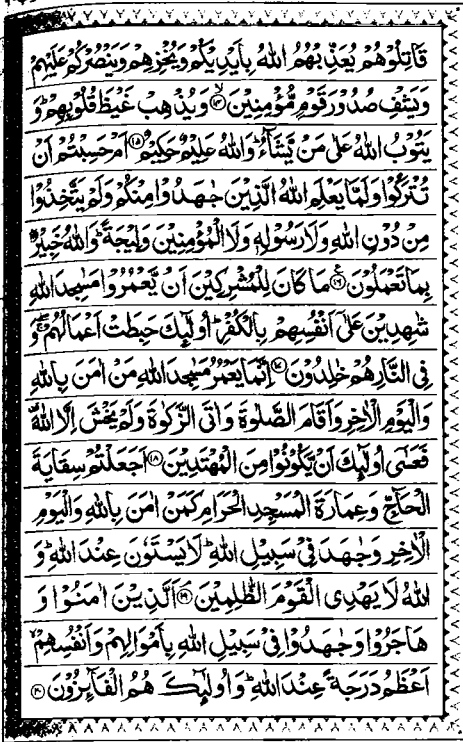 قَاتِلُوۡهُمۡ يُعَذِّبۡهُمُ اللهُ بِاَيۡدِيۡكُمۡ وَيُخۡزِهِمۡ وَيَنۡصُرۡكُمۡ عَلَيۡهِمۡ
وَيَشۡفِ صُدُوۡرَ قَوۡمٍ مُّؤۡمِنِيۡنَ ۙ﴿۱۴﴾ وَيُذۡهِبۡ غَيۡظَ قُلُوۡبِهِمۡ ؕ وَ
يَتُوۡبُ اللهُ عَلٰى مَنۡ يَّشَآءُ ؕ وَاللهُ عَلِيۡمٌ حَكِيۡمٌ ﴿۱۵﴾ اَمۡ حَسِبۡتُمۡ اَنۡ
تُتۡرَكُوۡا وَلَمَّا يَعۡلَمِ اللهُ الَّذِيۡنَ جٰهَدُوۡا مِنۡكُمۡ وَلَمۡ يَتَّخِذُوۡا
مِنۡ دُوۡنِ اللهِ وَلَا رَسُوۡلِهٖ وَلَا الۡمُؤۡمِنِيۡنَ وَلِيۡجَةً ؕ وَاللهُ خَبِيۡرٌۢ
بِمَا تَعۡمَلُوۡنَ ﴿۱۶﴾ مَا كَانَ لِلۡمُشۡرِكِيۡنَ اَنۡ يَّعۡمُرُوۡا مَسٰجِدَ اللهِ
شٰهِدِيۡنَ عَلٰٓى اَنۡفُسِهِمۡ بِالۡكُفۡرِ ؕ اُولٰٓئِكَ حَبِطَتۡ اَعۡمَالُهُمۡ ۚ وَ
فِى النَّارِ هُمۡ خٰلِدُوۡنَ ﴿۱۷﴾ اِنَّمَا يَعۡمُرُ مَسٰجِدَ اللهِ مَنۡ اٰمَنَ بِاللهِ
وَالۡيَوۡمِ الۡاٰخِرِ وَاَقَامَ الصَّلٰوةَ وَاٰتَى الزَّكٰوةَ وَلَمۡ يَخۡشَ اِلَّا اللهَ
فَعَسٰٓى اُولٰٓئِكَ اَنۡ يَّكُوۡنُوۡا مِنَ الۡمُهۡتَدِيۡنَ ﴿۱۸﴾ اَجَعَلۡتُمۡ سِقَايَةَ
الۡحَآجِّ وَعِمَارَةَ الۡمَسۡجِدِ الۡحَرَامِ كَمَنۡ اٰمَنَ بِاللهِ وَالۡيَوۡمِ
الۡاٰخِرِ وَجٰهَدَ فِىۡ سَبِيۡلِ اللهِ ؕ لَا يَسۡتَوٗنَ عِنۡدَ اللهِ ؕ وَ
اللهُ لَا يَهۡدِى الۡقَوۡمَ الظّٰلِمِيۡنَ ﴿۱۹﴾ اَلَّذِيۡنَ اٰمَنُوۡا وَ
هَاجَرُوۡا وَجٰهَدُوۡا فِىۡ سَبِيۡلِ اللهِ بِاَمۡوَالِهِمۡ وَاَنۡفُسِهِمۡ ۙ
اَعۡظَمُ دَرَجَةً عِنۡدَ اللهِ ؕ وَاُولٰٓئِكَ هُمُ الۡفَآئِزُوۡنَ ﴿۲۰﴾